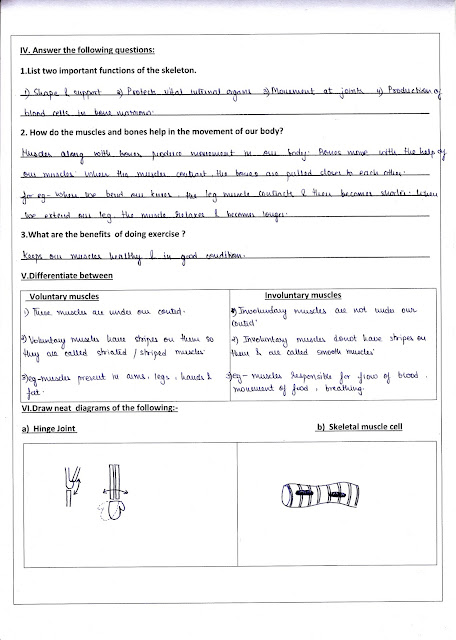 IV. Answer the following questions:
1.List two important functions of the skeleton.
1) Shape & support 2) Protects vital internal organs 3) Movement at joints 4) Production of
blood cells in bone marrow.
2. How do the muscles and bones help in the movement of our body?
Muscles along with bones produce movement in our body. Bones move with the help of
our muscles. When the muscles contract the bones are pulled closer to each other.
for eg- When we bend our knees, the leg muscle contracts & then becomes shorter. When
we extend our leg, the muscle relaxes & becomes longer.
3.What are the benefits of doing exercise ?
Keeps our muscles healthy & in good condition.
V.Differentiate between
Voluntary muscles
1) These muscles are under our control.
2) Voluntary muscles have stripes on them so
they are called striated / striped muscles
3) eg-muscles present in arms, legs, hands &
Involuntary muscles
1) Involuntary muscles are not under our
control.
2) Involuntary muscles donot have stripes on
them & are called smooth muscles
3) eg- muscles responsible for flow of blood,
movement of food, breathing.
VI.Draw neat diagrams of the following:-
a) Hinge Joint
b) Skeletal muscle cell